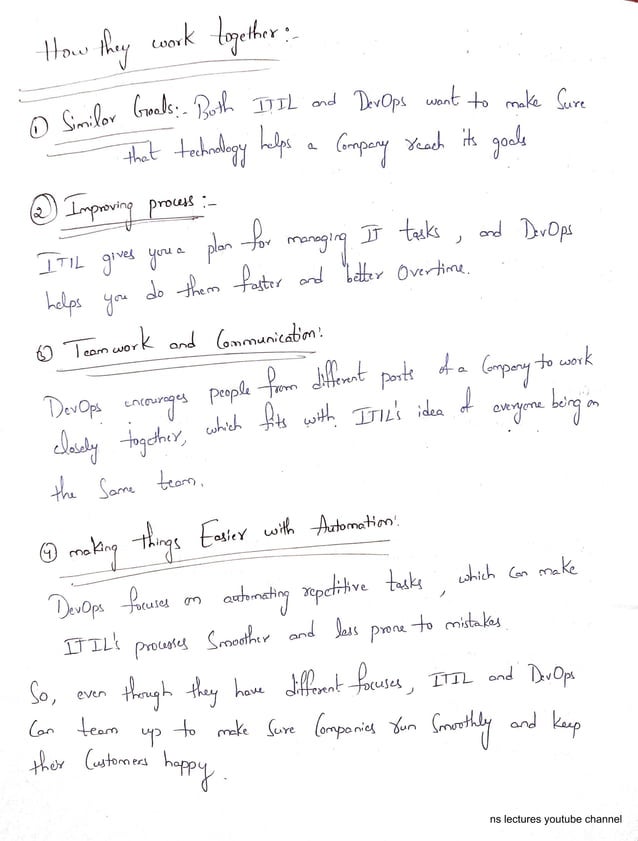 How they work together:-
① Similar Goals:- Both ITIL and DevOps want to make Sure
that technology helps a Company reach its goals
② Improving process:-
ITIL gives you a plan for managing IT tasks, and DevOps
helps you do them faster and better Overtime.
③ Teamwork and Communication:
DevOps encourages people from different parts of a Company to work
closely together, which fits with ITIL's idea of everyone being on
the Same team.
④ making things Easier with Automation:
DevOps focuses on automating repetitive tasks, which Can make
ITIL's processes Smoother and less prone to mistakes.
So, even though they have different focuses, ITIL and DevOps
Can team up to make Sure Companies run Smoothly and keep
their Customers happy.
ns lectures youtube channel